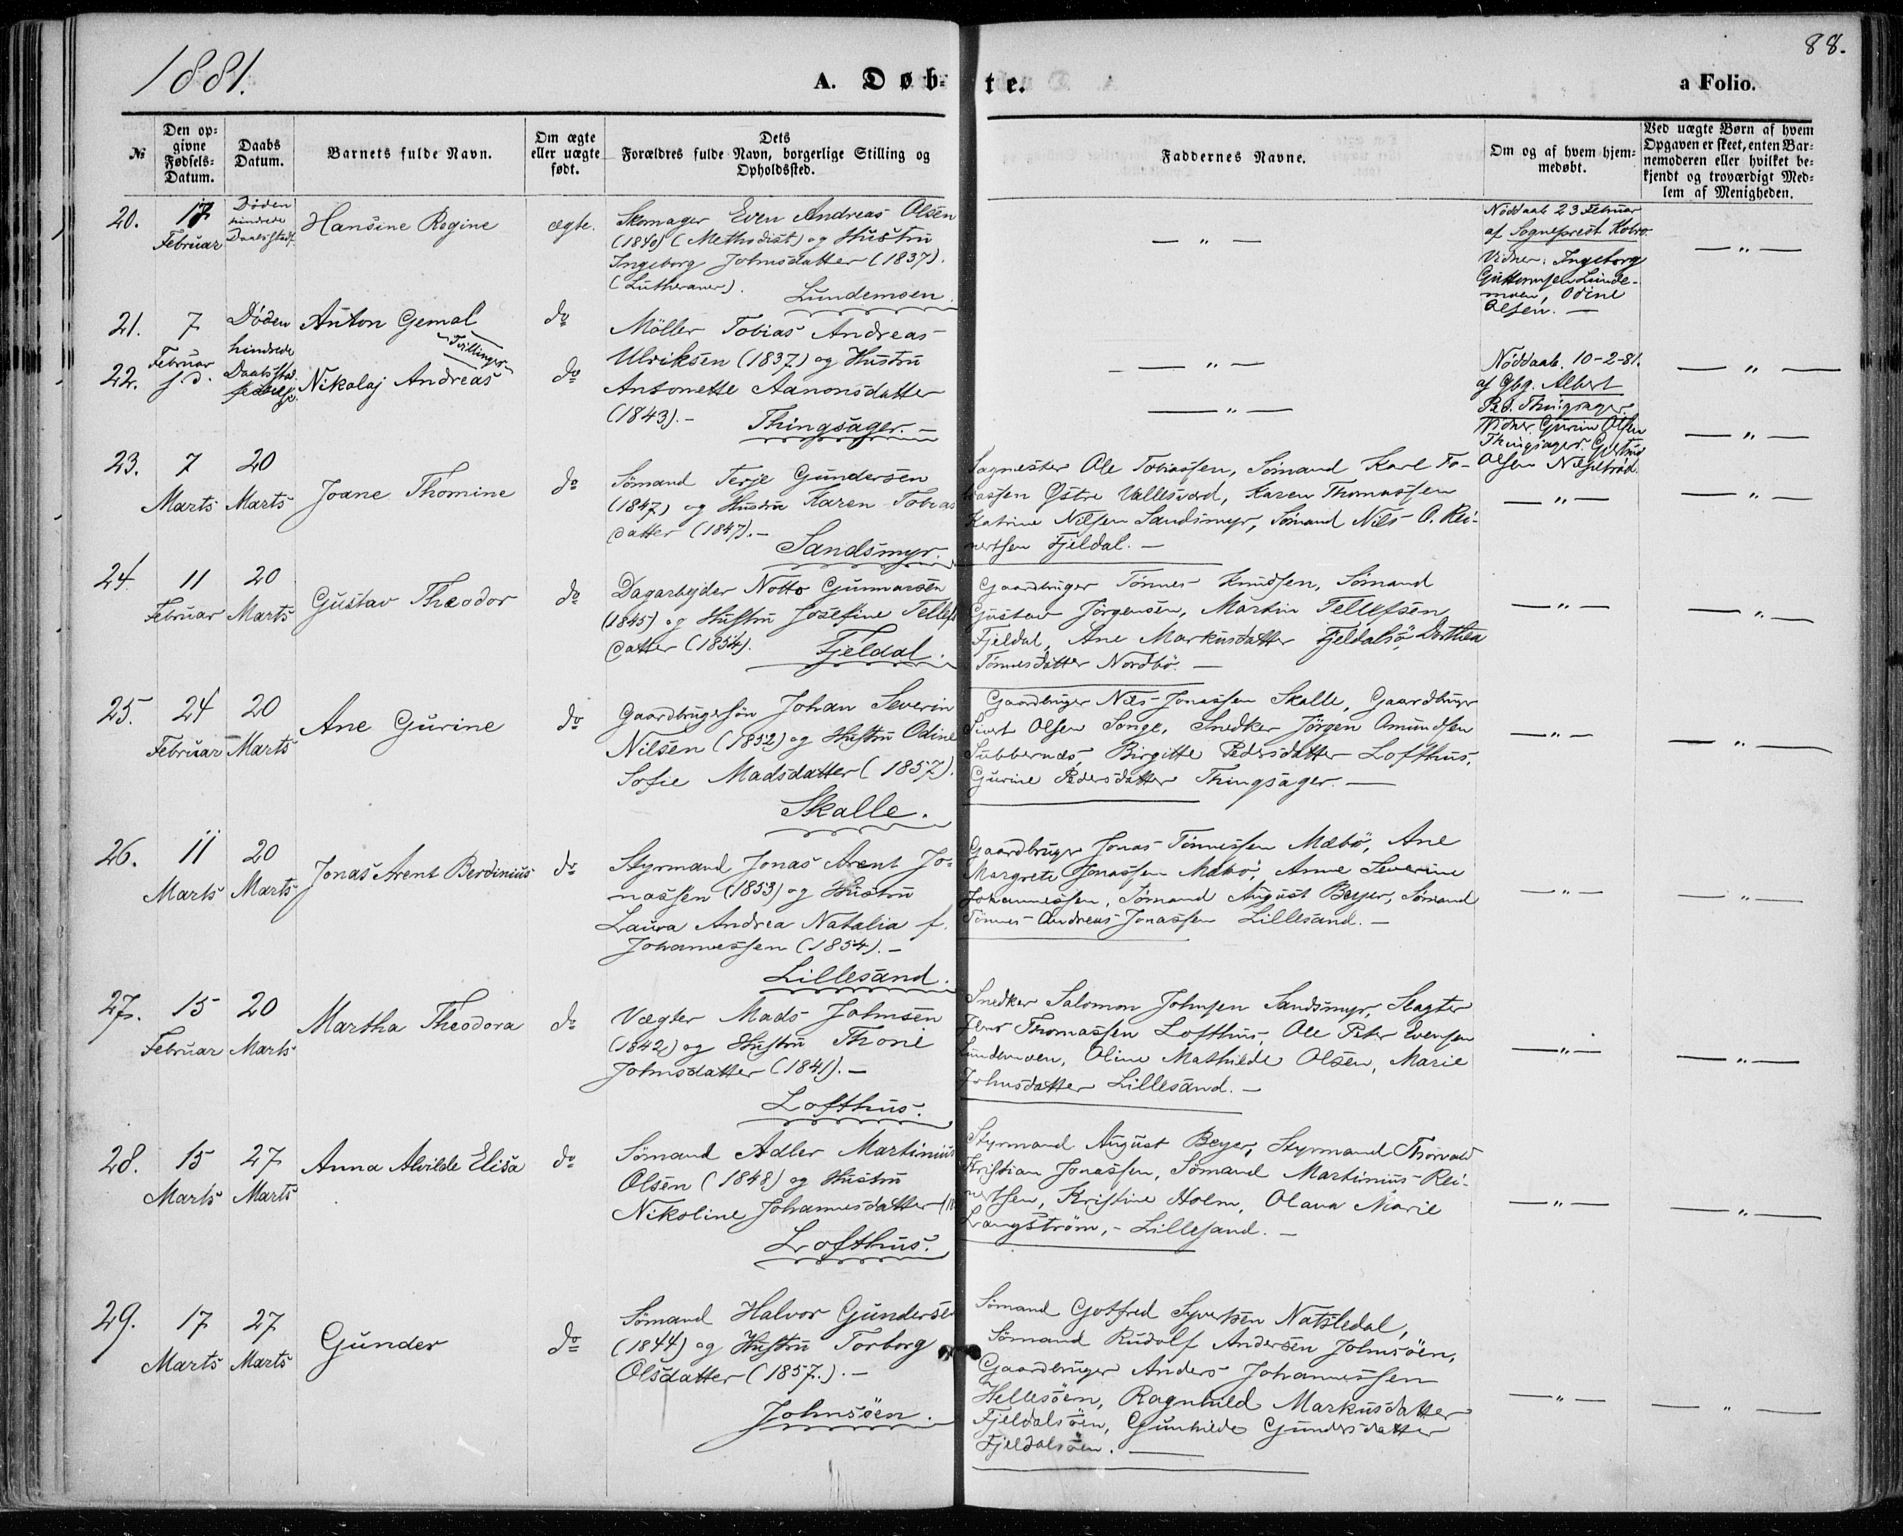 1881.
A. Døb-
te.
a Folio.
88.
№
Den op-
givne
Fødsels-
Datum.
Daabs
Datum.
Barnets fulde Navn.
Om ægte
eller uægte
født.
Dets
Forældres fulde Navn, borgerlige Stilling og
Opholdssted.
Faddernes Navne.
Om og af hvem hjem-
medøbt.
Ved uægte Børn af hvem
Opgaven er skeet, enten Bar-
nemoderen eller hvilket be-
kjendt og troværdigt Med-
lem af Menigheden.
20.
17
Februar
Døden
hindrede
Daabsstadf.
Hansine Regine
ægte.
Skomager Even Andreas Olsen
(1840) (Methodist) og Hustru
Ingeborg Johnsdatter (1837).
(Lutheraner).
Lundemoen.
— „ —
Nøddaab 23 Februar
af Sogneprest Kobro.
Vidner: Ingeborg
Guttormsen Lunde-
moen, Odine
Olsen. —
— „ —
21.
7
Februar
Døden
hindrede
Daabsstad-
fæstelse.
Anton Gemal
Tvillinger
do
Møller Tobias Andreas
Ulriksen (1837) og Hustru
Antonette Aanonsdatter
(1843). —
Thingsager. —
22.
s. d.
Nikolaj Andreas
do
— „ —
— „ —
Nøddaab. 10-2-81.
af Gbg. Albert
Ped. Thingsager.
Vidner Gurine Olsen
Thingsager, Gustav
Olsen Nilsebrød.
— „ —
— „ —
23.
7
Marts
20
Marts
Joane Thomine
do
Sømand Terje Gundersen
(1847) og Hustru Karen Tobias
datter (1847). —
Sandsmyr.
Sagmester Ole Tobiassen, Sømand Karl To-
biassen Østre Vallesværd, Karen Thomassen
Katrine Nilsen Sandsmyr, Sømand Nils O. Rei-
nertsen Fjeldal. —
— „ —
— „ —
24.
11
Februar
20
Marts
Gustav Theodor
do
Dagarbejder Notto Gunnarsen
(1845) og Hustru Josefine Tellefs
datter (1854).
Fjeldal.
Gaardbruger Tønnes Knudsen, Sømand
Gustav Jørgensen, Martin Tellefsen
Fjeldal, Ane Markusdatter Fjeldalsø, Dorthea
Tønnesdatter Nordbø. —
— „ —
— „ —
25.
24
Februar
20
Marts
Ane Gurine
do
Gaardbrugersøn Johan Severin
Nilsen (1852) og Hustru Odine
Sofie Madsdatter (1857).
Skalle.
Gaardbruger Nils Jonassen Skalle, Gaardbruger
Sivert Olsen Songe, Snedker Jörgen Amundsen
Tubbernæs, Birgitte Pedersdatter Lofthus,
Gurine Pedersdatter Thingsager. —
— „ —
— „ —
26.
11
Marts
20
Marts
Jonas Arent Berdinius
do
Styrmand Jonas Arent Jo-
nassen (1853) og Hustru
Laura Andrea Natalia f.
Johannessen (1854). —
Lillesand.
Gaardbruger Jonas Tønnessen Mæbø, Ane
Margrete Jonassen Mæbø, Anne Severine
Johannessen, Sømand August Beyer, Sømand
Tønnes Andreas Jonassen Lillesand. —
— „ —
— „ —
27.
15
Februar
20
Marts
Martha Theodora
do
Vægter Mads Johnsen
(1842) og Hustru Thone
Johnsdatter (1841). —
Lofthus.
Snedker Salomon Johnsen Sandsmyr, Slagter
Jens Thomassen Lofthus, Ole Peter Evensen
Lundemoen, Oline Mathilde Olsen, Marie
Johnsdatter Lillesand. —
— „ —
— „ —
28.
15
Marts
27
Marts
Anna Alvilde Elisa
do
Sømand Adler Martinius
Olsen (1848) og Hustru
Nikoline Johannesdatter (18
Lofthus.
Styrmand August Beyer, Styrmand Thorvald
Kristian Jonassen, Sømand Martinius Rei-
nertsen, Kristine Holm, Olava Marie
Langstrøm, Lillesand. —
— „ —
— „ —
29.
17
Marts
27
Marts
Gunder
do
Sømand Halvor Gundersen
(1844) og Hustru Torborg
Olsdatter (1857.). —
Johnsøen.
Sømand Gotfred Syvertsen Natsledal,
Sømand Rudolf Andersen Johnsøen,
Gaardbruger Anders Johannessen
Hellesøen, Ragnhild Markusdatter
Fjeldalsøen, Gunhilde Gundersdatter
Fjeldalsøen. —
— „ —
— „ —